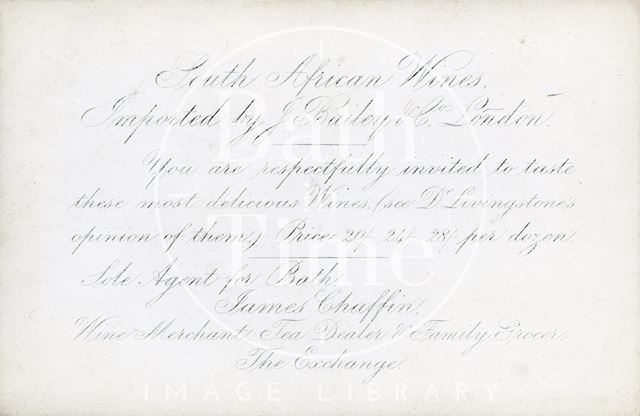 South African Wines.
Imported by J. Bailey & Co. London.
You are respectfully invited to taste
these most delicious Wines, (see Dr. Livingstone's
opinion of them.) Price 20/- 24/- 28/- per dozen.
Sole Agent for Bath
James Chaffin,
Wine Merchant, Tea Dealer & Family Grocer,
The Exchange.
Bath
in
Time
IMAGE LIBRARY